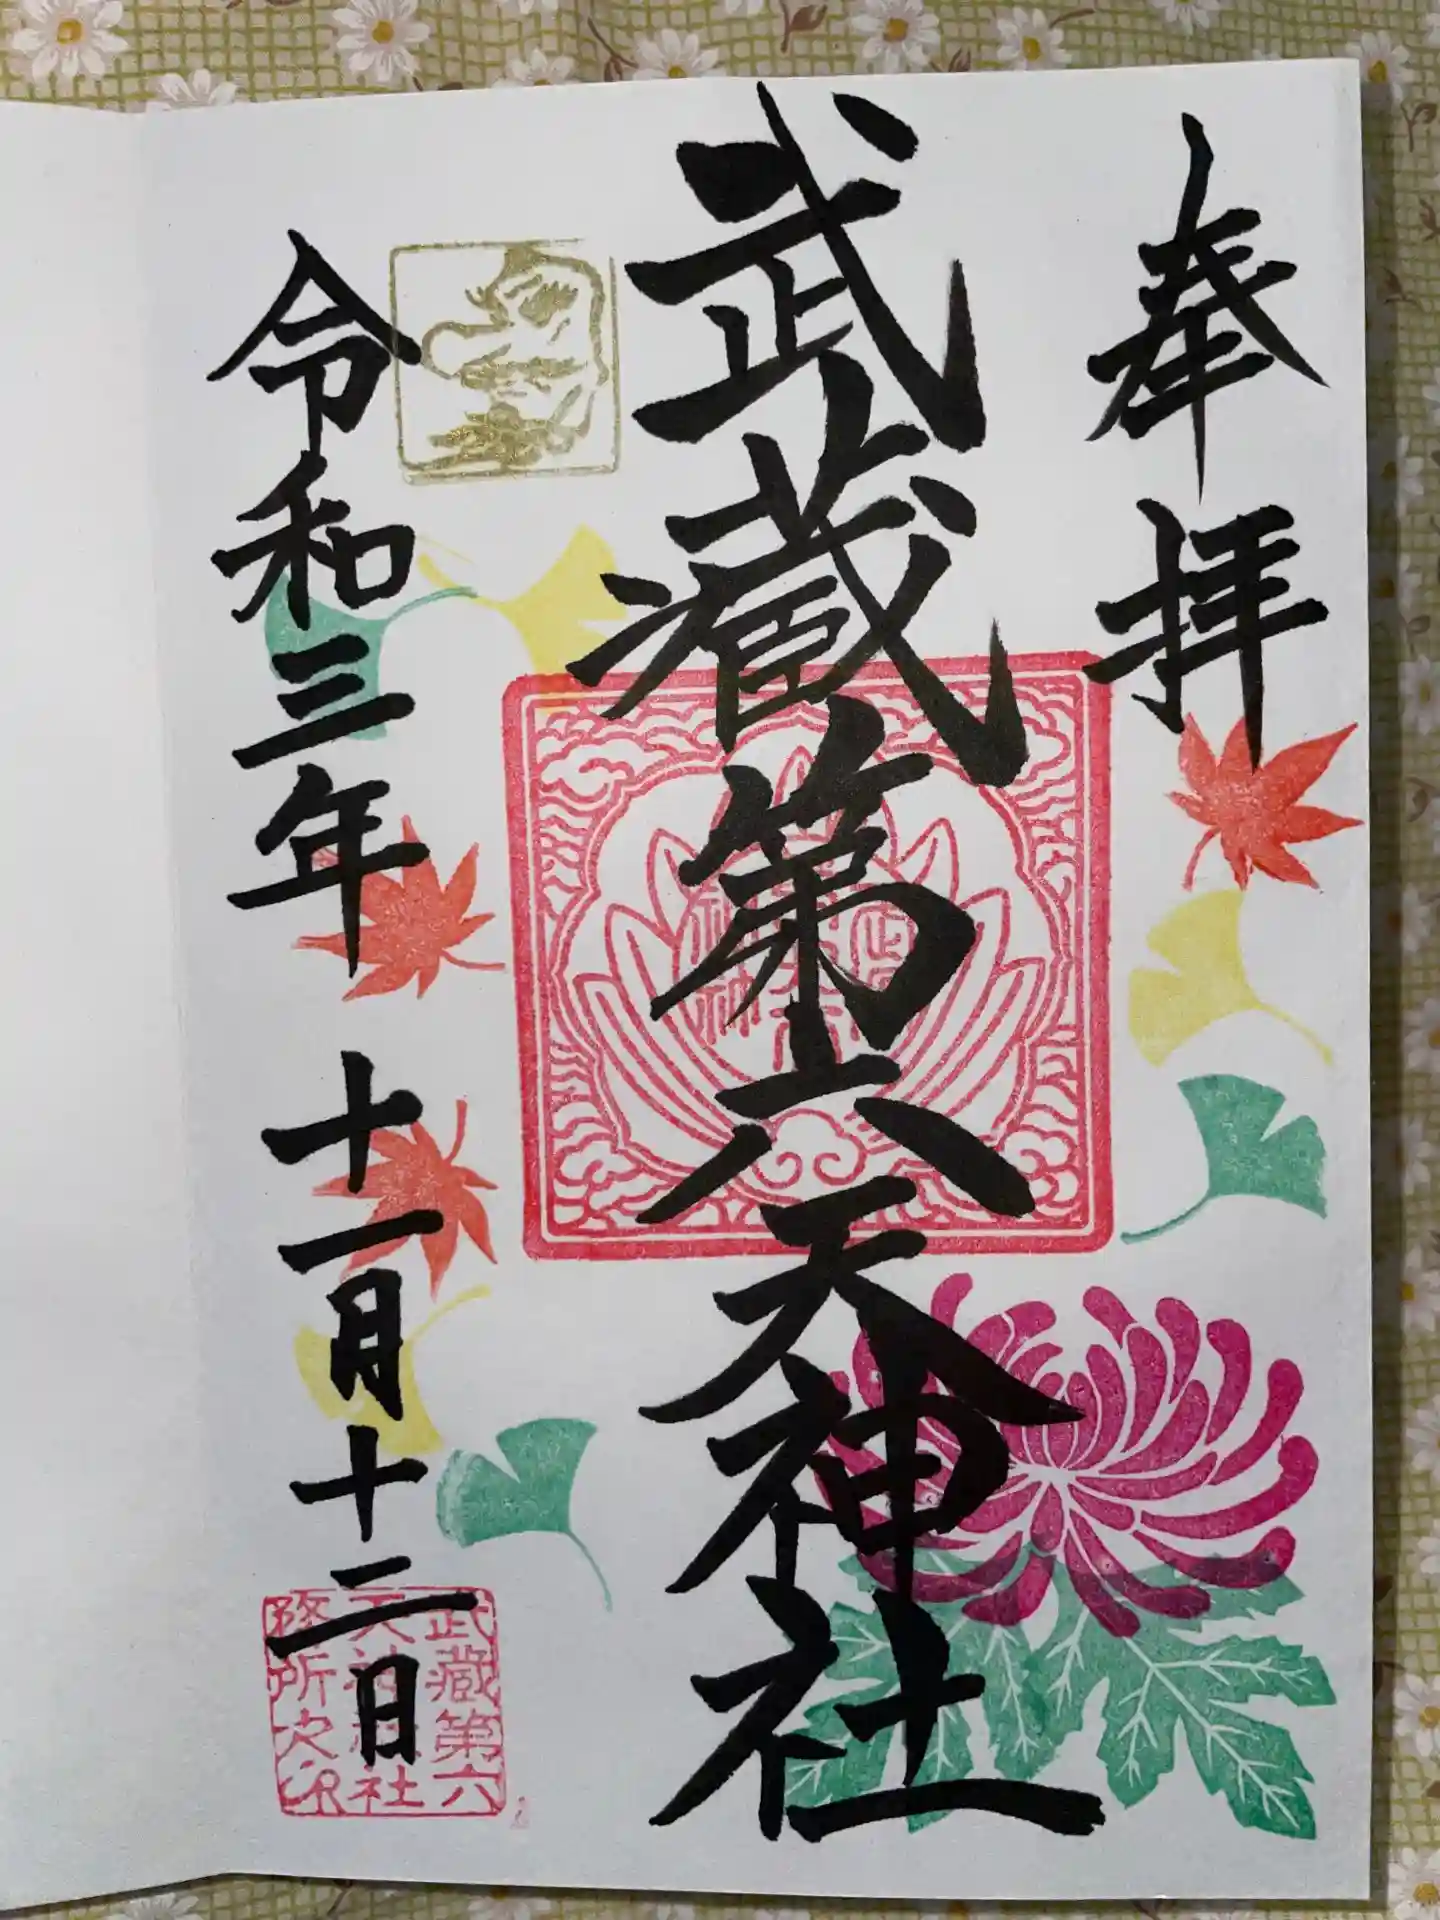 奉拝
武蔵第六天神社
令和三年 十一月十二日
武蔵第六
天神社
務所之印